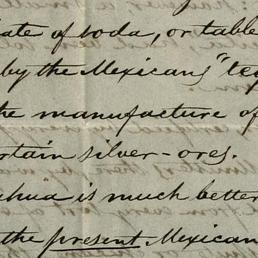 ate of soda, or table
by the Mexicans "teq
the manufacture of
rtain silver-ores.
hua" is much better
the present Mexican